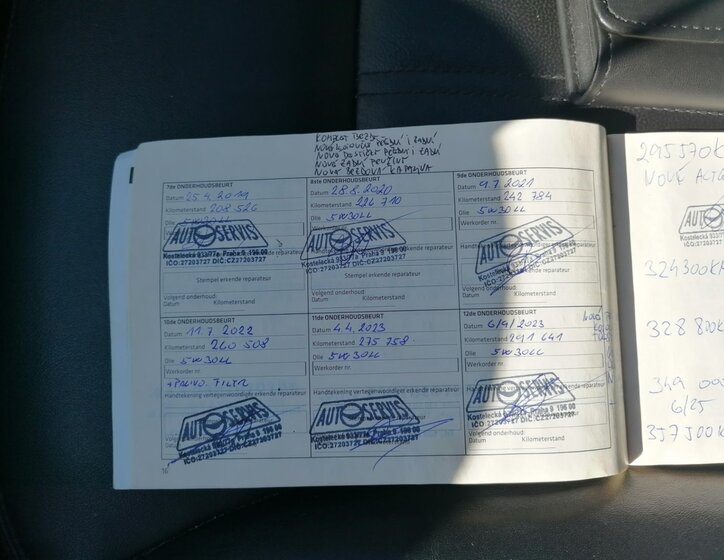 KOMPLET BRZDY
NOVÉ KOTOUČE PŘEDNÍ I ZADNÍ
NOVÉ DESTIČKY PŘEDNÍ I ZADNÍ
NOVÉ ZADNÍ PRUŽINY
NOVÁ BRZDOVÁ KAPALINA
7de ONDERHOUDSBEURT
Datum 25.4.2019
Kilometerstand 208 526
Olie 5W30LL
AUTOSERVIS
Kostelecká 933/77a Praha 9 196 00
IČO:27203727 DIČ:CZ27203727
Stempel erkende reparateur
Volgend onderhoud:
Datum Kilometerstand
8ste ONDERHOUDSBEURT
Datum 28.8.2020
Kilometerstand 226 710
Olie 5W30LL
Werkorder nr.
AUTOSERVIS
Kostelecká 933/77a Praha 9 196 00
IČO:27203727 DIČ:CZ27203727
Stempel erkende reparateur
Volgend onderhoud:
Datum Kilometerstand
9de ONDERHOUDSBEURT
Datum 9.7.2021
Kilometerstand 242 784
Olie 5W30LL
Werkorder nr.
AUTOSERVIS
Kostelecká 933/77a Praha 9 196 00
IČO:27203727 DIČ:CZ27203727
Volgend onderhoud:
Datum Kilometerstand
10de ONDERHOUDSBEURT
Datum 11.7.2022
Kilometerstand 260 508
Olie 5W30LL
Werkorder nr.
FILTR
AUTOSERVIS
Kostelecká 933/77a Praha 9 196 00
IČO:27203727 DIČ:CZ27203727
11de ONDERHOUDSBEURT
Datum 4.4.2023
Kilometerstand 275 758
Olie 5W30LL
Werkorder nr.
Handtekening vertegenwoordiger erkende reparateur
AUTOSERVIS
Kostelecká 933/77a Praha 9 196 00
IČO:27203727 DIČ:CZ27203727
12de ONDERHOUDSBEURT
Datum 6/9/2023
Kilometerstand 291 641
Olie 5W30LL
Werkorder nr.
AUTOSERVIS
Kostelecká 933/77a Praha 9 196 00
IČO:27203727 DIČ:CZ27203727
Volgend onderhoud:
Datum Kilometerstand
16
295570K
NOVÉ
324300K
328 800
349 00
6/25
357500K